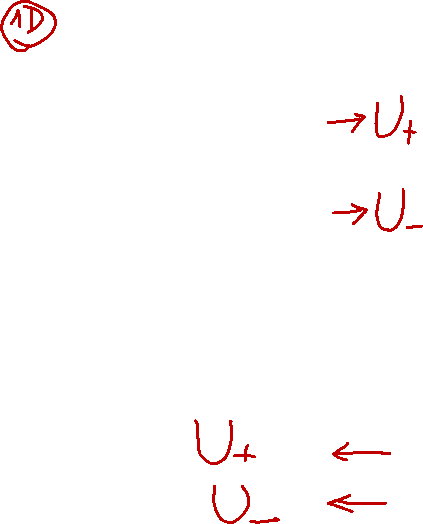 1D
→ U+
→ U-
U+ ←
U- ←